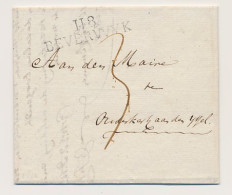 118
BEVERWYK
Aan den Maire
te
Ouderkerk aan den Yssel
3